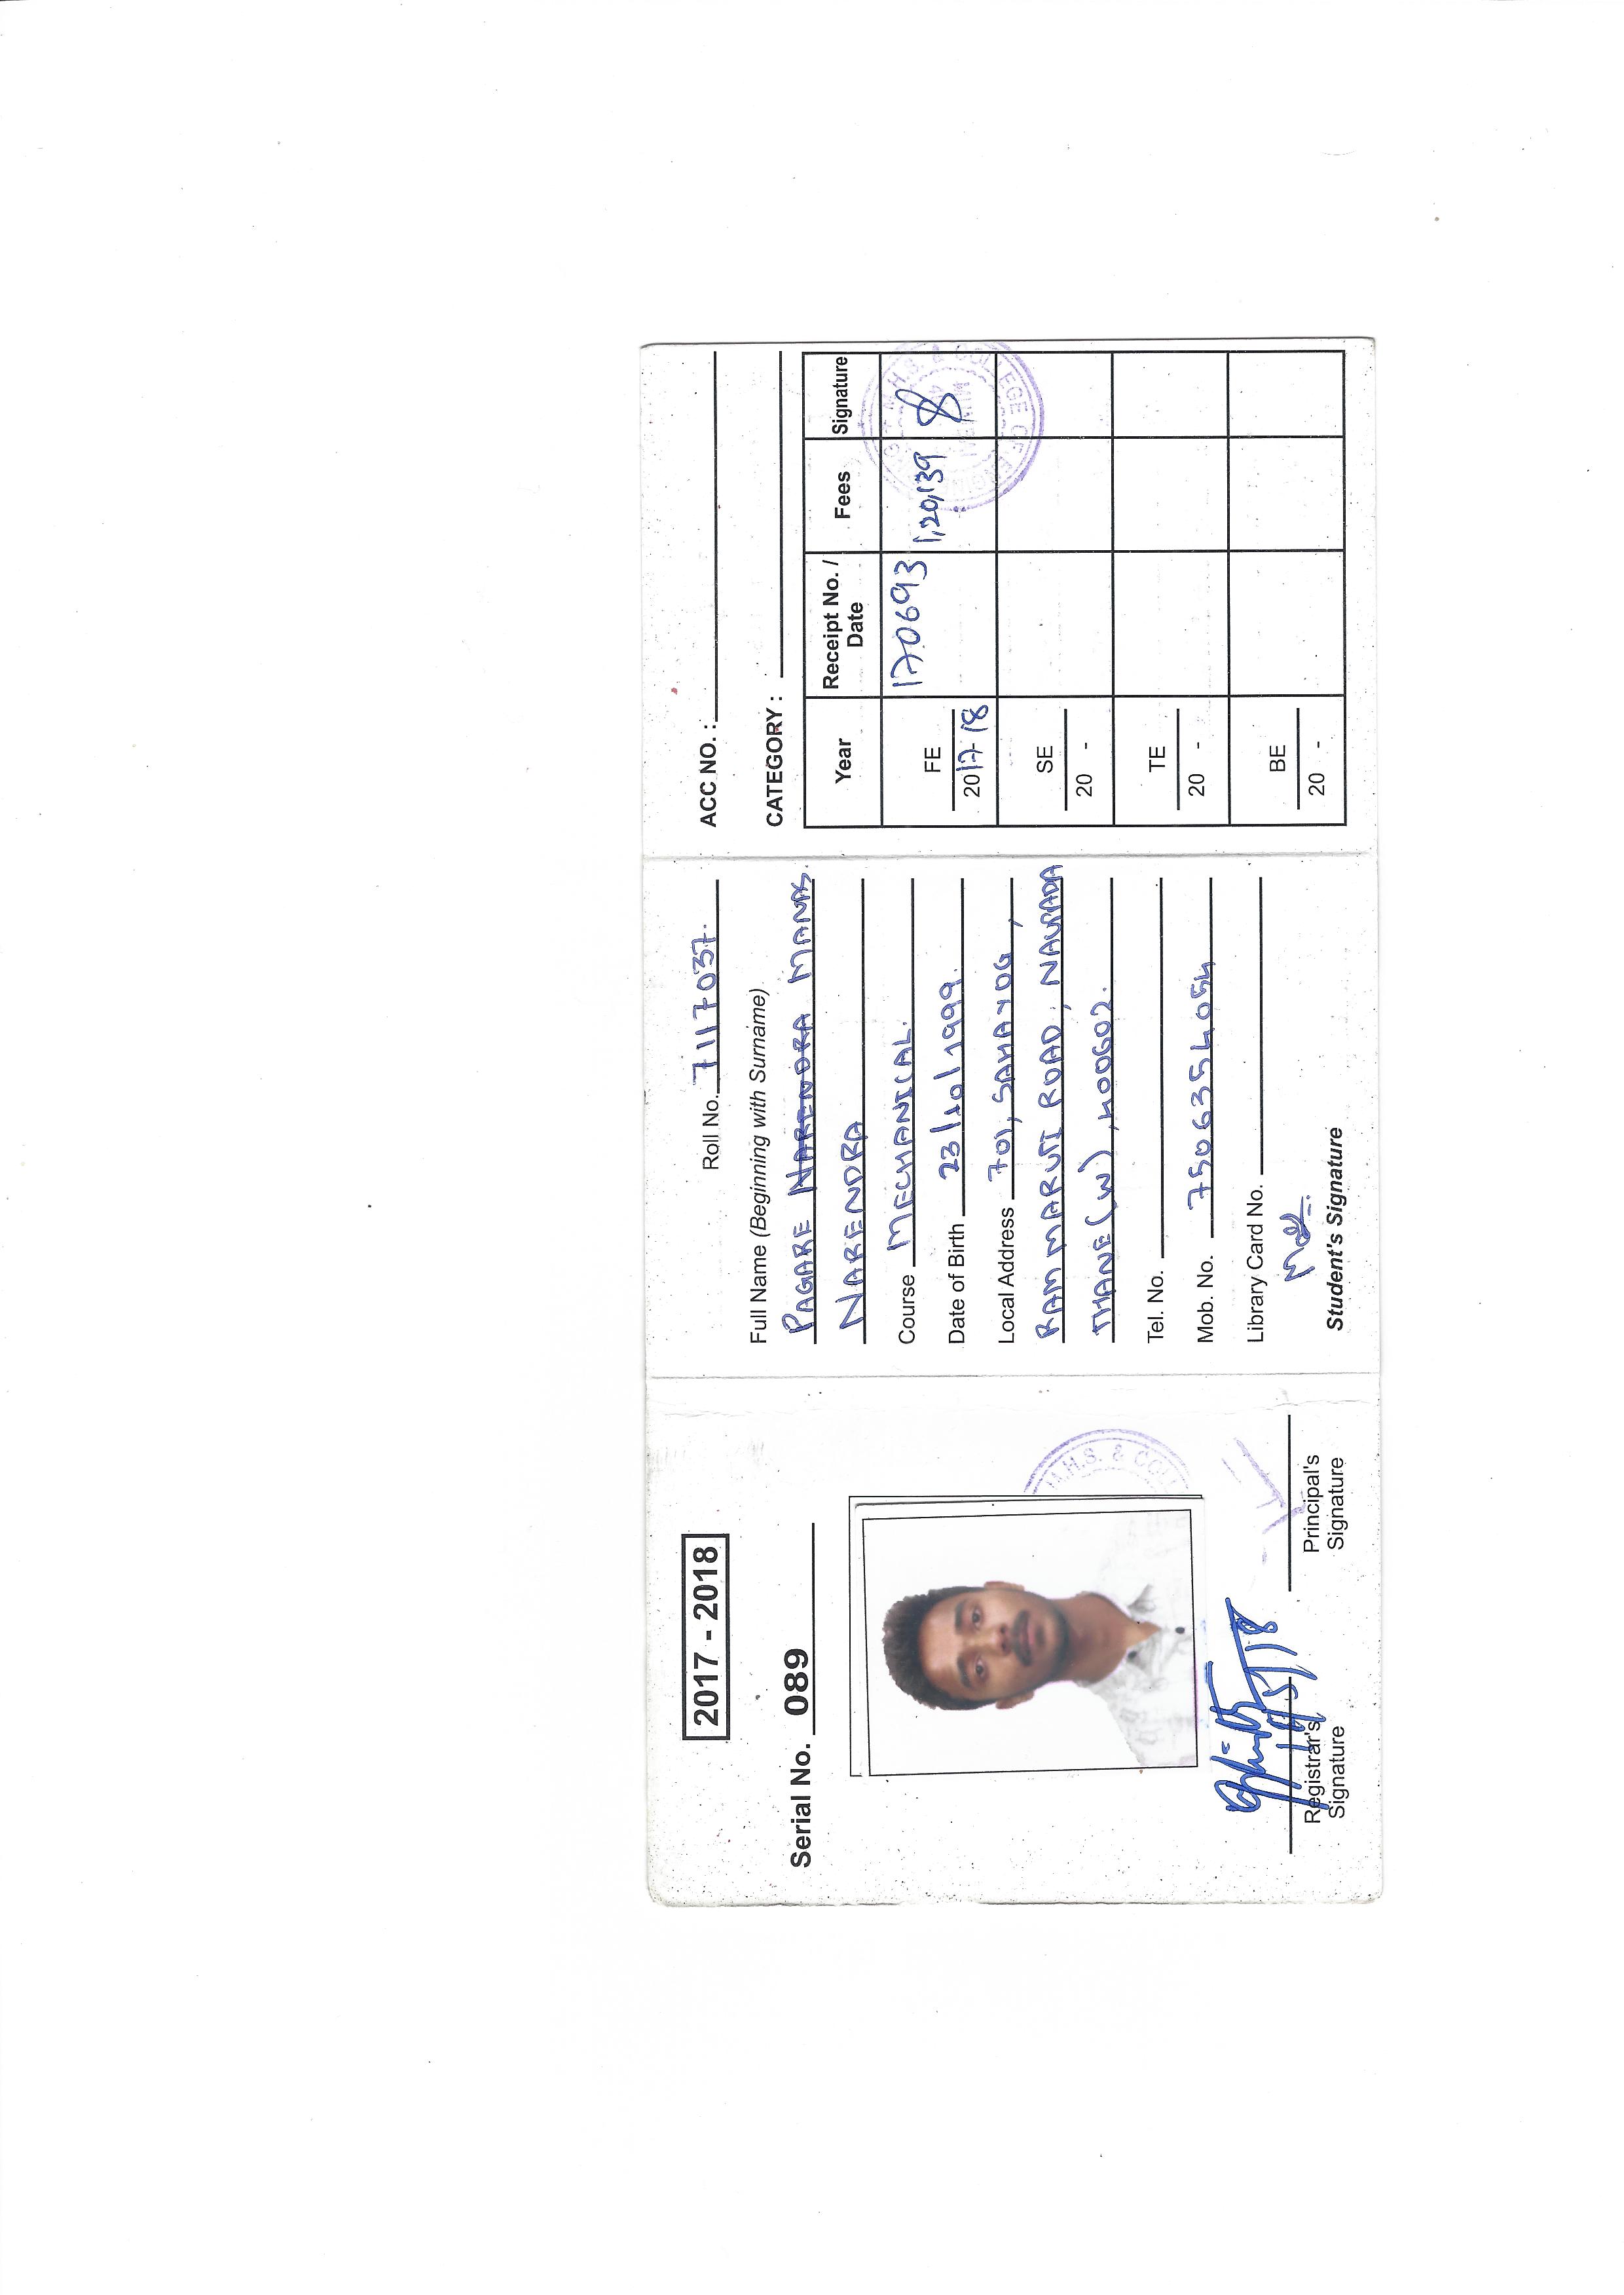 2017 - 2018
Serial No. 089
Registrar's Signature
Principal's Signature
M.H.S. & COLL
Roll No. 7117037.
Full Name (Beginning with Surname)
PAGARE NARENDRA MANAS
NARENDRA
Course MECHANICAL.
Date of Birth 23/10/1999.
Local Address 701, SAHAYOG,
RAM MARUTI ROAD, NAUPADA
THANE (W), 400602.
Tel. No.
Mob. No. 7506354054
Library Card No.
Student's Signature
ACC NO. :
CATEGORY :
Year Receipt No. / Date Fees Signature
FE 2017-18 170693 1,20,139
SE 20 -
TE 20 -
BE 20 -
M.H.S. & COLLEGE OF